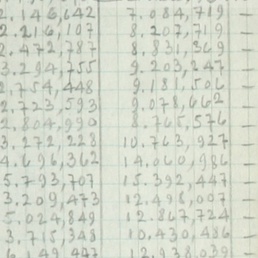 2.146,642 7.084,719 —
2.216,107 8.207,719
2.472,787 8.831,369 —
3.294,755 9.203,247
2.754,448 9.181,506 —
2.723,593 9.078,662 —
2.804,990 8.765,576
3.272,228 10.763,927 —
4.696,362 14.060,986 —
5.793,707 15.392,447 —
3.209,473 12.498,007 —
5.024,849 12.867,724 —
3.715,348 10.430,486 —
6.149,447 12.938,039 —